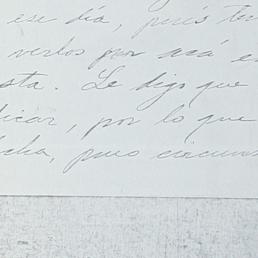 ese día, pués ten
verlos por acá e
sta. Le digo que
licar, por lo que
cha, pues circuns